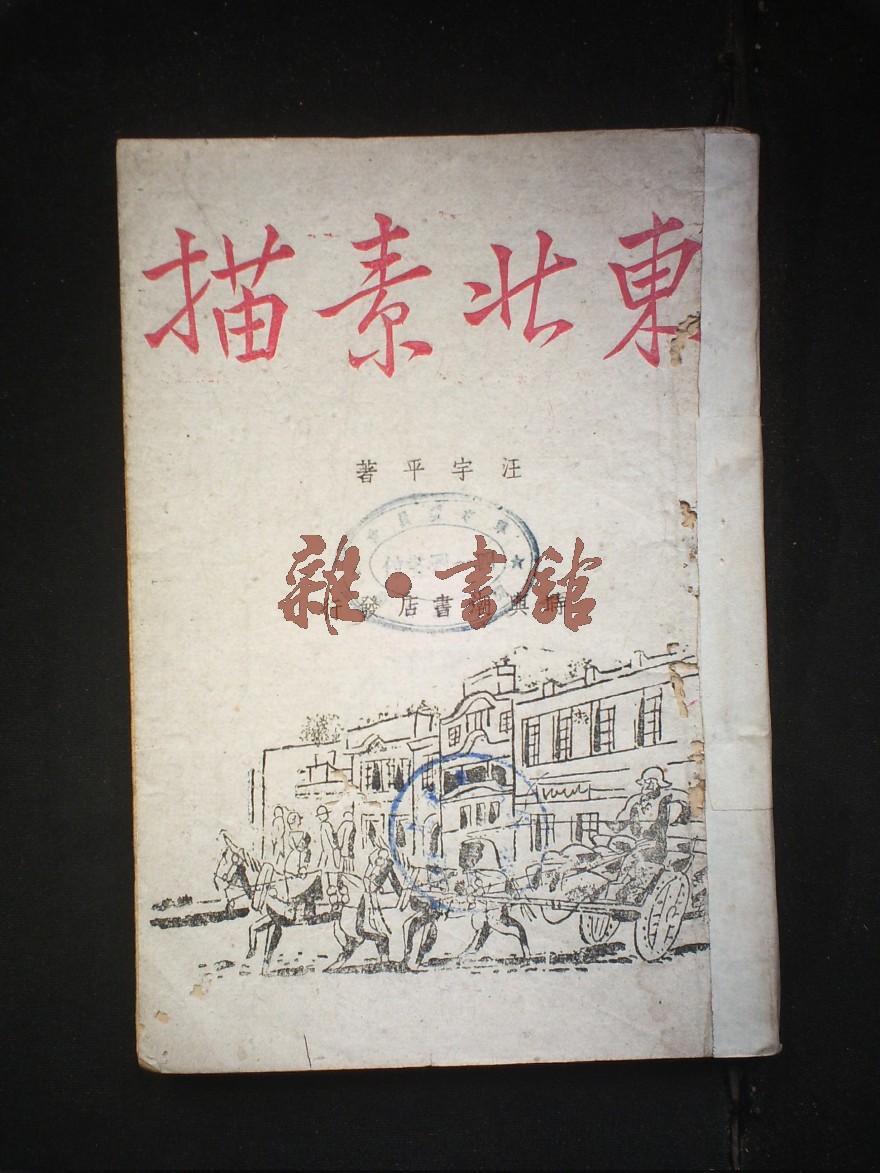 東北素描
汪宇平著
時與潮書店發行
雜·書館